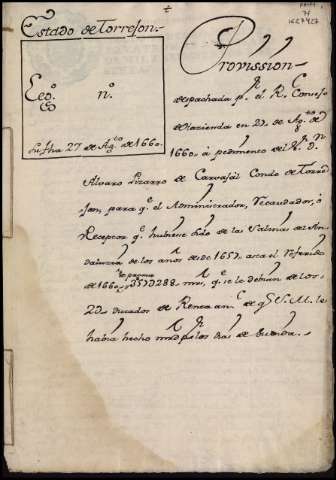 Estado de Torrejon.
Leg.º n.º
Su fha 27 de Ag.to de 1660.
Provission
despachada p.r el R. C Consejo
de Hazienda en 27 de Ag.to de
1660 à pedimento del S.r D.n
Alvaro Pizarro de Carvajàl Conde de Torre
Jon, para q.e el Administrador, Recaudador, ò
Receptor q.e hubiese sido de las Salinas de An
dalucia de los años de 1657 asta el referido
de 1660, mrs, q.e se le debian de los
2 ducados de Renta an.l de q.e S. M. le
había hecho mrd por los dias de su vida.